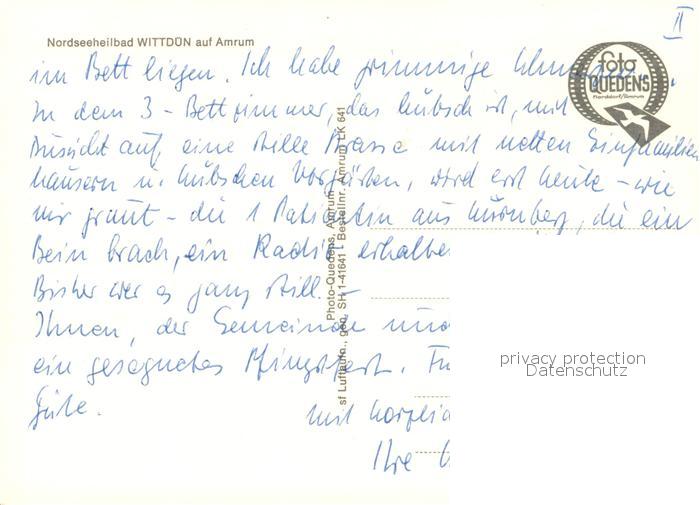 II
Nordseeheilbad WITTDÜN auf Amrum
foto
QUEDENS
Norddorf/Amrum
im Bett liegen. Ich habe grimmige
In dem 3-Bettzimmer, das hübsch ist, mit
Aussicht auf eine stille Strasse mit netten Einfamilien
häusern u. hübschen Vorgärten, wird erst heute - wie
mir graut - die 1 Patientin aus Nürnberg, die ein
Bein brach, ein Radio erhalte
Bisher war es ganz still. -
Ihnen, der Gemeinde und
ein gesegnetes Pfingstfest.
Gute.
mit herzli
Ihre
Photo-Quedens, Amrum
sf Luftaufn., geg. SH 1-41641 · Bestellnr. Amrum LK 641
privacy protection
Datenschutz